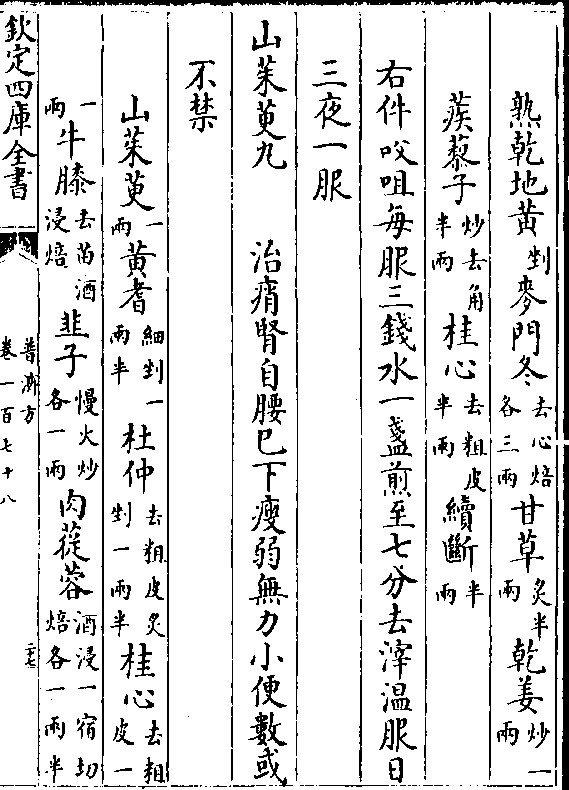 熟乾地黃剉麥門冬去心焙各三兩甘草炙半兩乾姜炒一兩
蒺藜子炒去角半兩桂心去粗皮半兩續斷半兩
右件㕮咀每服三錢水一盞煎至七分去滓温服日
三夜一服
山茱萸丸　治痟腎自腰已下瘦弱無力小便數或
不禁
山茱萸一兩黃耆細剉一兩半杜仲去粗皮炙剉一兩半桂心去粗皮一
兩牛膝去苗酒浸焙韭子慢火炒各一兩肉蓯蓉酒浸一宿切焙各一兩半
欽定四庫全書
普濟方
卷一百七十八